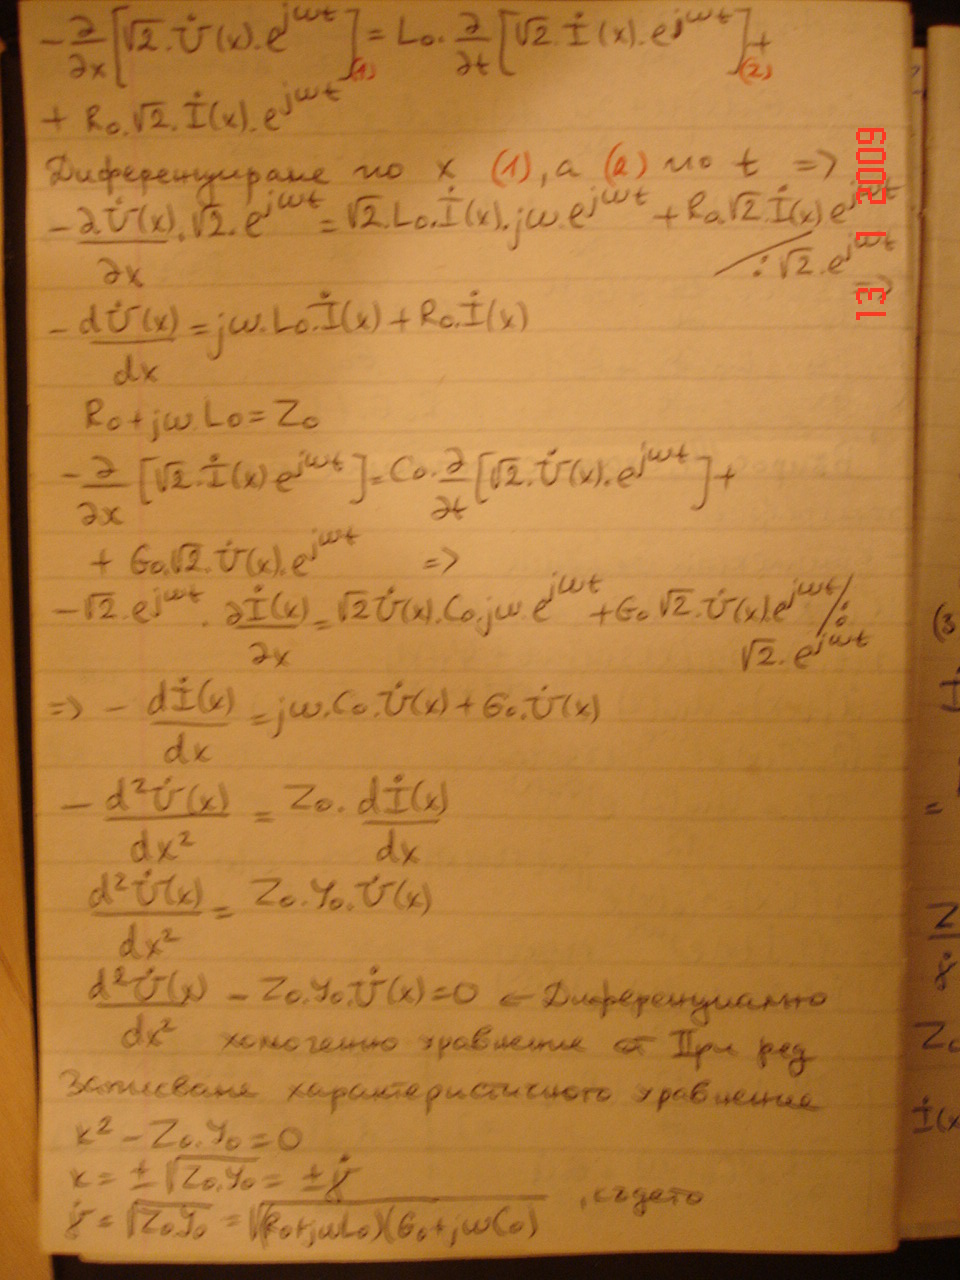 -∂/∂x [√2.U̇(x).e^jωt](1) = L₀.∂/∂t [√2.İ(x).e^jωt](2) +
+ R₀.√2.İ(x).e^jωt
Диференциране по x (1), а (2) по t =>
-∂U̇(x)/∂x.√2.e^jωt = √2.L₀.İ(x).jω.e^jωt + R₀.√2.İ(x)e^jωt
/:√2.e^jωt
=>
-dU̇(x)/dx = jω.L₀.İ(x) + R₀.İ(x)
R₀+jωL₀=Z₀
-∂/∂x [√2.İ(x)e^jωt] = C₀.∂/∂t [√2.U̇(x).e^jωt] +
+ G₀.√2.U̇(x).e^jωt =>
-√2.e^jωt.∂İ(x)/∂x = √2U̇(x).C₀.jω.e^jωt + G₀√2.U̇(x).e^jωt /:
√2.e^jωt
=> -dİ(x)/dx = jω.C₀.U̇(x) + G₀.U̇(x)
-d²U̇(x)/dx² = Z₀.dİ(x)/dx
d²U̇(x)/dx² = Z₀.Y₀.U̇(x)
d²U̇(x)/dx² - Z₀.Y₀.U̇(x)=0 ← Диференциално
хомогенно уравнение от IIри ред
Записване характеристичното уравнение
k² - Z₀.Y₀=0
k= ±√Z₀.Y₀ = ±γ̇
γ̇ = √Z₀.Y₀ = √(R₀+jωL₀)(G₀+jωC₀) , където
13 1 2009
(3
=
Z
γ̇
Z₀
İ(x